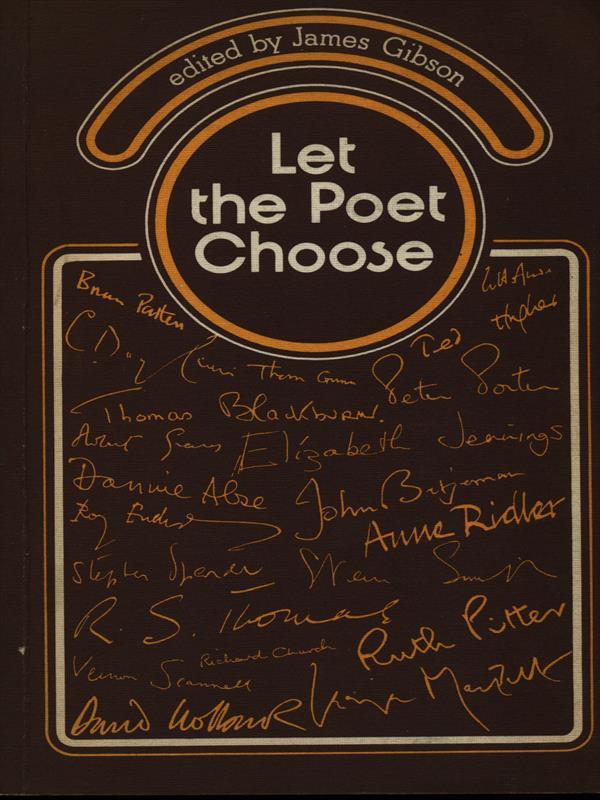 edited by James Gibson
Let
the Poet
Choose
Brian Patten
Ted Hughes
C. Day Lewis
Thom Gunn
Peter Porter
Thomas Blackburn.
Robert Graves
Elizabeth Jennings
Dannie Abse
John Betjeman
Roy Fuller
Anne Ridler
Stephen Spender
R. S. Thomas
Ruth Pitter
Richard Church
Vernon Scannell
David Holbrook